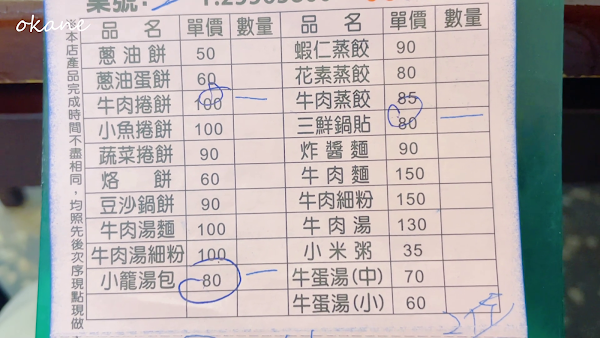 okane
桌號:
品 名 單價 數量 品 名 單價 數量
蔥油餅 50 蝦仁蒸餃 90
蔥油蛋餅 60 花素蒸餃 80
牛肉捲餅 100 一 牛肉蒸餃 85
小魚捲餅 100 三鮮鍋貼 80 一
蔬菜捲餅 90 炸醬麵 90
烙 餅 60 牛肉麵 150
豆沙鍋餅 90 牛肉細粉 150
牛肉湯麵 100 牛肉湯 130
牛肉湯細粉 100 小米粥 35
小籠湯包 80 一 牛蛋湯(中) 70
牛蛋湯(小) 60
本店產品完成時間不盡相同，均照先後次序現點現做